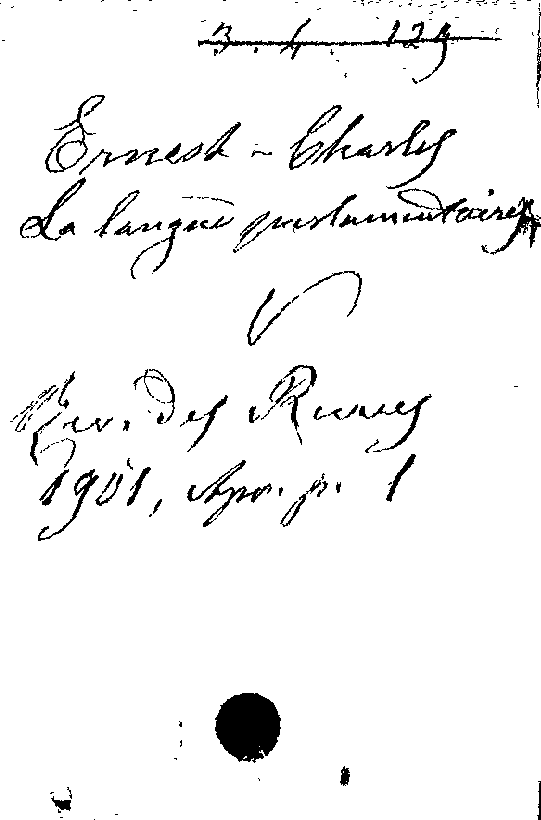 3. 4. 125
Ernest-Charles
La langue parlementaire
Rev. des Revues
1901, Apr. p. 1